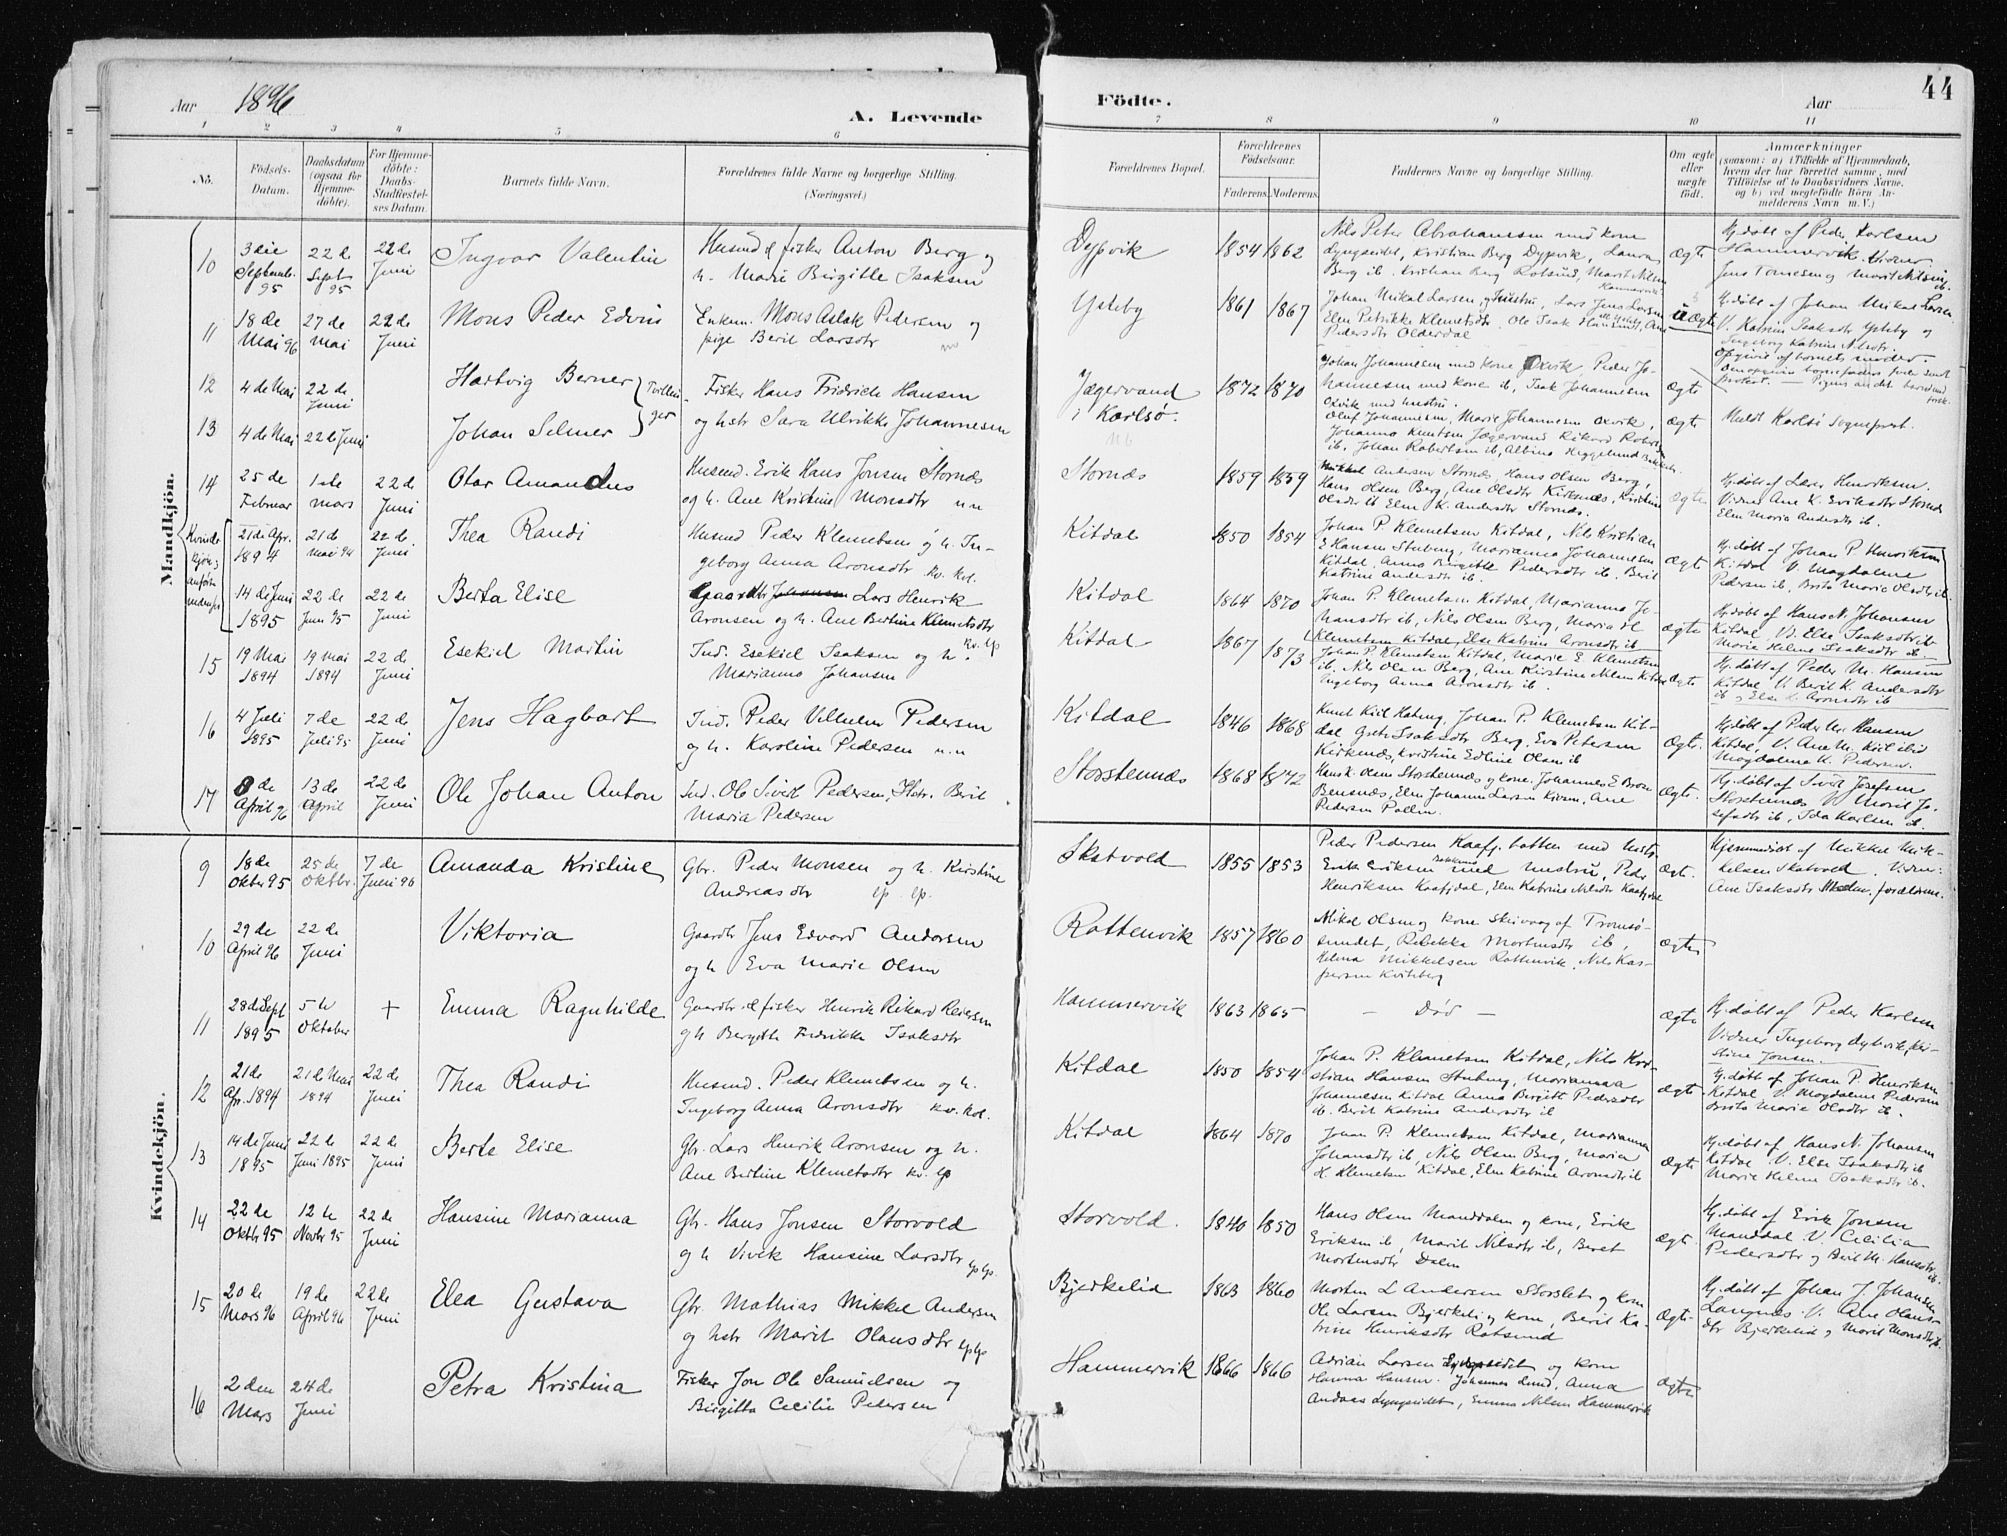 Aar 1896
A. Levende
Födte.
Aar
44
1 2 3 4 5 6 7 8 9 10 11
No.
Födsels-Datum.
Daabsdatum (ogsaa for Hjemme-döbte).
For Hjemme-döbte: Daabs-Stadfæstel-ses Datum.
Barnets fulde Navn.
Forældrenes fulde Navne og borgerlige Stilling. (Næringsvei.)
Forældrenes Bopæl.
Forældrenes Födselsaar.
Faderens Moderens
Faddernes Navne og borgerlige Stilling.
Om ægte eller uægte födt.
Anmærkninger
(saasom: a) i Tilfælde af Hjemmedaab,
hvem der har forrettet samme, med
Tilföielse af to Daabsvidners Navne,
og b) ved uægtefödte Börn An-
melderens Navn m. V.)
Mandkjön.
10 3die Septemb. 95 22de Sept 95 22de Juni Ingvar Valentin
Husmd & fisker Anton Berg og
h. Marie Birgitte Isaksen
Dypvik 1854 1862
Nils Peter Abrahamsen med kone
Lyngseidet, Kristian Berg Dypvik, Laura
Berg ib.
ægte
Hj. døbt af Peder Karlsen
Hammervik
11 18de Mai 96 27de Mai 22de Juni Mons Peder Edvin
Enkem. Mons Aslak Pedersen og
pige Berit Larsdtr
Ysteby 1861 1867
Johan Mikal Larsen, Lars Jens Larsen
Pedersdtr Olderdal
uægte
Hj. døbt af Johan Mikal Larsen
V. Katrine Isaksdtr Ysteby og
Ingeborg Katrine Nilsdtr.
12 4de Mai 22de Juni Hartvig Berner Tvillin-
Fisker Hans Fridrich Hansen
Jægervand 1872 1870
Johan Johannesen med kone Oxvik, Peder Jo-
hannesen med kone ib, Isak Johannesen
Oxvik med hustru.
ægte
13 4de Mai 22de Juni Johan Selmer ger
og hstr Sara Ulrikke Johannesen
i Karlsø.
Oluf Johannesen, Marie Johannesen Oxvik,
Johanna Knutsen Jægervand
ægte
Meldt Karlsö Sognepræst.
14 25de Februar 1ste mars 22de Juni Otar Amandus
Husmd. Erik Hans Jonsen Stornæs
og h. Ane Kristine Monsdtr n.n
Stornæs 1859 1859
Mikkel Andersen Stornæs, Hans Olsen Berg,
Hans Olsen Berg, Ane Olsdtr Kirkenæs, Kirstine
ægte
Hj. døbt af Lærer Henriksen.
Vidner Ane K. Eriksdtr Stornæs
Elen Marie Andersdtr ib.
21de Apr. 1894 21de Mai 94 22de Juni Thea Randi
Husmd Peder Klemetsen og h. In-
geborg Anna Aronsdtr kv. kv.
Kitdal 1850 1854
Johan P. Klemetsen Kitdal, Nils Kristian
Hansen Stubeng, Marianna Johannesen
Kitdal, Anna Birgitte Pedersdtr ib, Berit
Katrine Andersdtr ib.
ægte
Hj. døbt af Johan P. Henriksen
Kitdal V. Magdalene
Pedersen ib, Brita Marie Olsdtr ib
14de Juni 1895 22de Juni 95 22de Juni Berta Elise
Lars Henrik
Aronsen og h. Ane Bertine Klemetsdtr kv. lp
Kitdal 1864 1870
Johan P. Klemetsen Kitdal, Marianna Jo-
hansdtr ib, Nils Olsen Berg, Maria H
Klemetsen Kitdal, Else Katrine Aronsdtr ib
ægte
Hj. døbt af Hans N. Johansen
Kitdal V. Else Isaksdtr ib
Marie Helene Isaksdtr ib.
15 19 Mai 1894 19 Mai 1894 22de Juni Esekiel Martin
Ind. Esekiel Isaksen og h.
Marianna Johansen
Kitdal 1867 1873
Johan P. Klemetsen Kitdal, Marie E. Klemetsen
ib. Nils Olsen Berg, Ane Kirstine Nilsen Kitdal
Ingeborg Anna Aronsdtr ib.
ægte
Hj. døbt af Peder M. Hansen
Kitdal V. Berit K. Andersdtr
16 4 Juli 1895 7de Juli 95 22de Juni Jens Hagbart
Ind. Peder Vilhelm Pedersen
og h. Karoline Pedersen n.n
Kitdal 1846 1868
Johan P. Klemetsen Kit-
dal Isaksdtr Berg, Eva Petersen
Kirkenæs, Kristine Edline Olsen ib
ægte.
Hj. døbt af Peder M. Hansen
Kitdal, V. Ane M. Kiil
Magdalene K. Pedersen.
17 8de April 96 13de April 22de Juni Ole Johan Anton
Ind. Ole Sivert Pedersen, Hstr. Berit
Maria Pedersen
Storstennæs 1868 1872
Hans K. Olsen Storstennæs og kone. Johannes E Bros
Bensnæs, Elen Johanna Larsen, Ane
Pedersen Pollen.
ægte.
Hj. døbt af Sivert Josefsen
Storstennæs V. Marit Jo-
sefsdtr ib, Ida Karlsen ib.
Kvindekjön.
9 18de Oktbr 95 25de Oktbr. 7de Juni 96 Amanda Kristine
Gbr. Peder Monsen og h. Kirstine
Andreasdtr lp. lp.
Skatvold 1855 1853
Peder Pedersen Kaafj. botten med hustr.
Erik Eriksen med hustru, Peder
Henriksen Kaafjdal, Elen Katrine Nilsdtr Kaafjdal
ægte.
Hjemmedøbt af Mikkel Mik-
kelsen Skatvold. Vidn:
Ane Isaksdtr, forældrene.
10 29de April 96 22de Juni Viktoria
Gaardbr Jens Edvard Andersen
og h Eva Marie Olsen
Rottenvik 1857 1860
Mikal Olsen og kone Skivaag af Tromsø-
sundet, Rebekka Mortensdtr ib,
Helena Mikkelsen Rottenvik, Nils Kas-
persen Kviteberg
ægte
11 28de Sept 1895 5te Oktober + Emma Ragnhilde
Gaardbr & fisker Henrik Rikard Reiersen
og h Bergitte Fredrikke Isaksdtr
Hammervik 1863 1865
— Død —
ægte
Hj. døbt af Peder Karlsen
Vidner Ingeborg Dybvik, Kri-
stine Jonsen.
12 21de Apr. 1894 21de Mai 1894 22de Juni Thea Randi
Husmd. Peder Klemetsen og h.
Ingeborg Anna Aronsdtr kv. kv.
Kitdal 1850 1854
Johan P. Klemetsen Kitdal, Nils Kri-
stian Hansen Stubeng, Marianna
Johannesen Kitdal Anna Birgitte Pedersdtr
ib. Berit Katrine Andersdtr ib
ægte
Hj. døbt af Johan P. Henriksen
Kitdal. V. Magdalene Pedersen
Brita Marie Olsdtr ib.
13 14de Juni 1895 22de Juni 1895 22de Juni Berte Elise
Gbr. Lars Henrik Aronsen og h.
Ane Bertine Klemetsdtr kv. lp
Kitdal 1864 1870
Johan P. Klemetsen Kitdal, Marianna
Johansdtr ib, Nils Olsen Berg, Maria
H. Klemetsen Kitdal, Elen Katrine Aronsdtr ib
ægte
Hj. døbt af Hans N. Johansen
Kitdal V. Else Isaksdtr ib
Marie Helene Isaksdtr ib.
14 22de Oktbr 95 12te Novbr 95 22de Juni Hansine Marianna
Gbr. Hans Jonsen Storvold
og h Vivek Hansine Larsdtr lp lp.
Storvold. 1840 1850
Hans Olsen Manddalen og kone, Erik
Eriksen ib, Marit Nilsdtr ib, Beret
Mortensdtr Dalen
ægt.
Hj. døbt af Erik Jonsen
Manddal. V. Cecilia
Pedersdtr og Berit M. Hansdtr ib.
15 20de Mars 96 19de April 96 22de Juni Elea Gustava
Gbr. Mathias Mikkel Andersen
og hstr Marit Olausdtr lp lp
Bjerkelid 1863 1860
Morten L Andersen Storslet og kone
Ole Larsen Bjerkeli og kone, Berit Ka-
trine Henriksdtr Rotsund
Ægte
Hj. døbt af Johan J. Johansen
Langnes. V. Ane Olaus-
dtr Bjerkelid og Marit Monsdtr ib.
16 2den Mars 24de Juni Petra Kristina
Fisker Jon Ole Samuelsen og
Birgitta Cecilie Pedersen
Hammervik 1866 1866
Adrian Larsen Lyngseidet og kone
Hanna Hansen. Johannes Lund, Anna
Andaas Lyngseidet, Emma Nilsen Hammervik
ægte